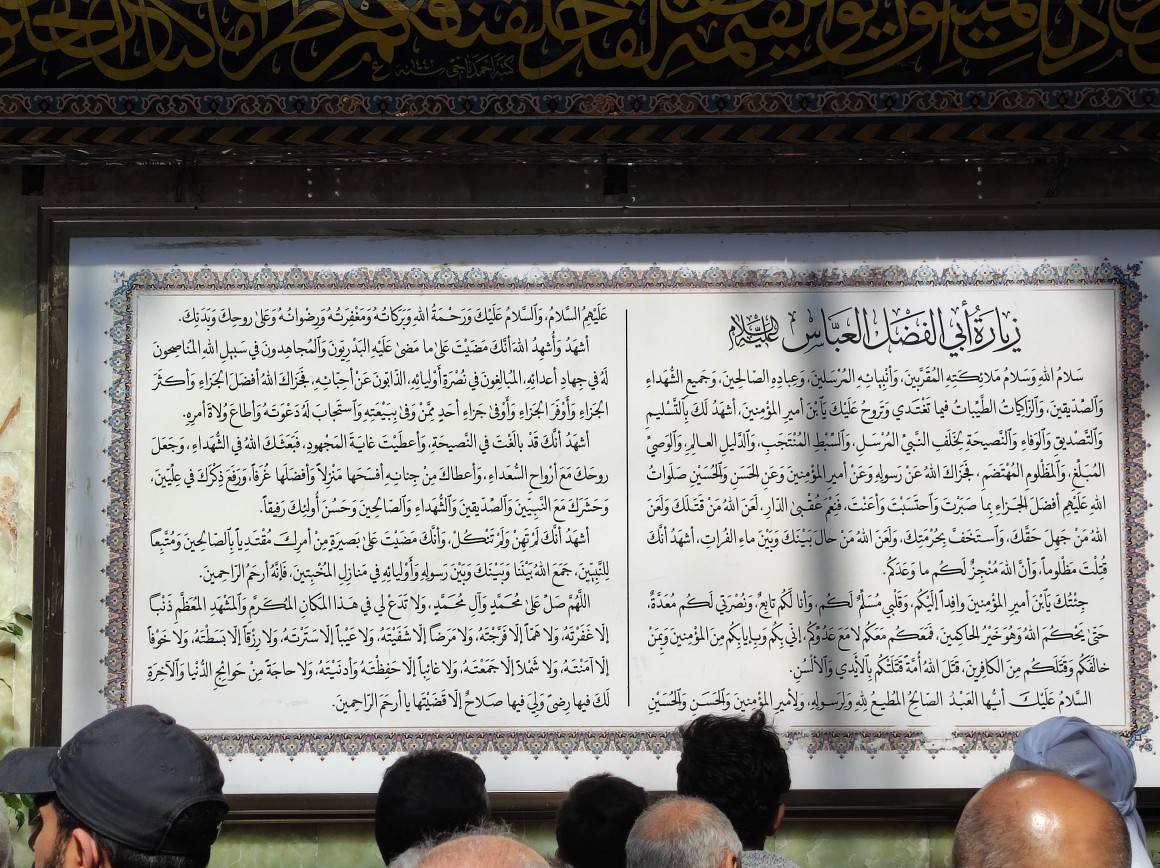 كتبه احمد ناجي سنة ١٤٤٠
زيارة أبي الفضل العباس عليه السلام
سَلامُ اللهِ وَسَلامُ مَلائِكَتِهِ المُقَرَّبِينَ، وَأَنْبِيائِهِ المُرْسَلينَ، وَعِبادِهِ الصّالِحينَ، وَجَميعِ الشُّهَداءِ
وَالصِّدّيقينَ، وَالزّاكِياتُ الطَّيِّباتُ فيما تَغْتَدي وَتَروحُ عَلَيْكَ يَا بْنَ أَميرِ المُؤْمِنينَ، أَشْهَدُ لَكَ بِالتَّسْليمِ
وَالتَّصْديقِ وَالوَفاءِ وَالنَّصيحَةِ لِخَلَفِ النَّبِيِّ المُرْسَلِ، وَالسِّبْطِ المُنْتَجَبِ، وَالدَّليلِ العالِمِ، وَالوَصِيِّ
المُبَلِّغِ، وَالمَظْلومِ المُهْتَضَمِ، فَجَزاكَ اللهُ عَنْ رَسولِهِ وَعَنْ أَميرِ المُؤْمِنينَ وَعَنِ الحَسَنِ وَالحُسَيْنِ صَلَواتُ
اللهِ عَلَيْهِم أَفْضَلَ الجَزاءِ بِما صَبَرْتَ وَاحْتَسَبْتَ وَأَعَنْتَ، فَنِعْمَ عُقْبَى الدّارِ، لَعَنَ اللهُ مَنْ قَتَلَكَ وَلَعَنَ
اللهُ مَنْ جَهِلَ حَقَّكَ، وَاسْتَخَفَّ بِحُرْمَتِكَ، وَلَعَنَ اللهُ مَنْ حالَ بَيْنَكَ وَبَيْنَ ماءِ الفُراتِ، أَشْهَدُ أَنَّكَ
قُتِلْتَ مَظْلوماً، وَأَنَّ اللهَ مُنْجِزٌ لَكُم ما وَعَدَكُم.
جِئْتُكَ يَا بْنَ أَميرِ المُؤْمِنينَ وافِداً إلَيْكُم، وَقَلْبي مُسَلِّمٌ لَكُم، وَأَنا لَكُم تابِعٌ، وَنُصْرَتي لَكُم مُعَدَّةٌ،
حَتّىٰ يَحْكُمَ اللهُ وَهُوَ خَيْرُ الحاكِمينَ، فَمَعَكُم مَعَكُم لا مَعَ عَدُوِّكُم، إنّي بِكُم وَبِإيابِكُم مِنَ المُؤْمِنينَ وَبِمَنْ
خالَفَكُم وَقَتَلَكُم مِنَ الكافِرينَ، قَتَلَ اللهُ أُمَّةً قَتَلَتْكُم بِالأَيْدي وَالأَلْسُنِ.
السَّلامُ عَلَيْكَ أَيُّها العَبْدُ الصّالِحُ المُطيعُ للهِ وَلِرَسولِهِ، وَلِأَميرِ المُؤْمِنينَ وَالحَسَنِ وَالحُسَيْنِ
عَلَيْهِمُ السَّلامُ، وَالسَّلامُ عَلَيْكَ وَرَحْمَةُ اللهِ وَبَرَكاتُهُ وَمَغْفِرَتُهُ وَرِضْوانُهُ وَعَلىٰ روحِكَ وَبَدَنِكَ.
أَشْهَدُ وَأُشْهِدُ اللهَ أَنَّكَ مَضَيْتَ عَلىٰ ما مَضىٰ عَلَيْهِ البَدْرِيّونَ وَالمُجاهِدونَ في سَبيلِ اللهِ المُناصِحونَ
لَهُ في جِهادِ أَعْدائِهِ، المُبالِغونَ في نُصْرَةِ أَوْلِيائِهِ، الذّابّونَ عَنْ أَحِبّائِهِ، فَجَزاكَ اللهُ أَفْضَلَ الجَزاءِ وَأَكْثَرَ
الجَزاءِ وَأَوْفَرَ الجَزاءِ وَأَوْفىٰ جَزاءِ أَحَدٍ مِمَّنْ وَفىٰ بِبَيْعَتِهِ وَاسْتَجابَ لَهُ دَعْوَتَهُ وَأَطاعَ وُلاةَ أَمْرِهِ.
أَشْهَدُ أَنَّكَ قَدْ بالَغْتَ في النَّصيحَةِ، وَأَعْطَيْتَ غايَةَ المَجْهودِ، فَبَعَثَكَ اللهُ في الشُّهَداءِ، وَجَعَلَ
روحَكَ مَعَ أَرْواحِ السُّعَداءِ، وَأَعْطاكَ مِنْ جِنانِهِ أَفْسَحَها مَنْزِلاً وَأَفْضَلَها غُرَفاً، وَرَفَعَ ذِكْرَكَ في عِلِّيّينَ،
وَحَشَرَكَ مَعَ النَّبِيّينَ وَالصِّدّيقينَ وَالشُّهَداءِ وَالصّالِحينَ وَحَسُنَ أُولئِكَ رَفيقاً.
أَشْهَدُ أَنَّكَ لَمْ تَهِنْ وَلَمْ تَنْكُلْ، وَأَنَّكَ مَضَيْتَ عَلىٰ بَصيرَةٍ مِنْ أَمْرِكَ، مُقْتَدِياً بِالصّالِحينَ وَمُتَّبِعاً
لِلنَّبِيّينَ، جَمَعَ اللهُ بَيْنَنا وَبَيْنَكَ وَبَيْنَ رَسولِهِ وَأَوْلِيائِهِ في مَنازِلِ المُخْبِتينَ، فَإنَّهُ أَرْحَمُ الرّاحِمينَ.
اللَّهُمَّ صَلِّ عَلىٰ مُحَمَّدٍ وَآلِ مُحَمَّدٍ، وَلا تَدَعْ لي في هذا المَكانِ المُكَرَّمِ وَالمَشْهَدِ المُعَظَّمِ ذَنْباً
إلّا غَفَرْتَهُ، وَلا هَمّاً إلّا فَرَّجْتَهُ، وَلا مَرَضاً إلّا شَفَيْتَهُ، وَلا عَيْباً إلّا سَتَرْتَهُ، وَلا رِزْقاً إلّا بَسَطْتَهُ، وَلا خَوْفاً
إلّا آمَنْتَهُ، وَلا شَمْلاً إلّا جَمَعْتَهُ، وَلا غائِباً إلّا حَفِظْتَهُ وَأَدْنَيْتَهُ، وَلا حاجَةً مِنْ حَوائِجِ الدُّنْيا وَالآخِرَةِ
لَكَ فيها رِضىً وَلِيَ فيها صَلاحٌ إلّا قَضَيْتَها يا أَرْحَمَ الرّاحِمينَ.